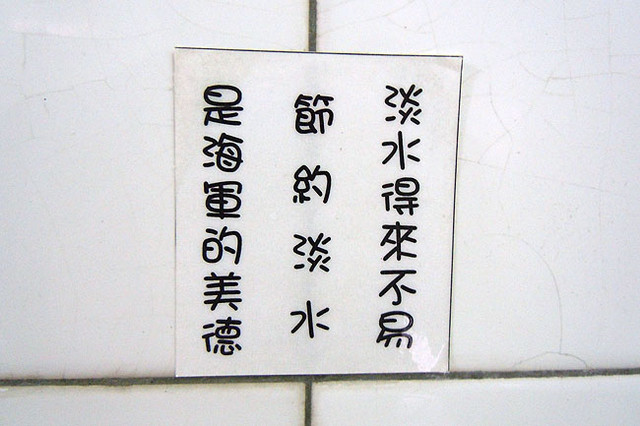 淡水得來不易
節約淡水
是海軍的美德